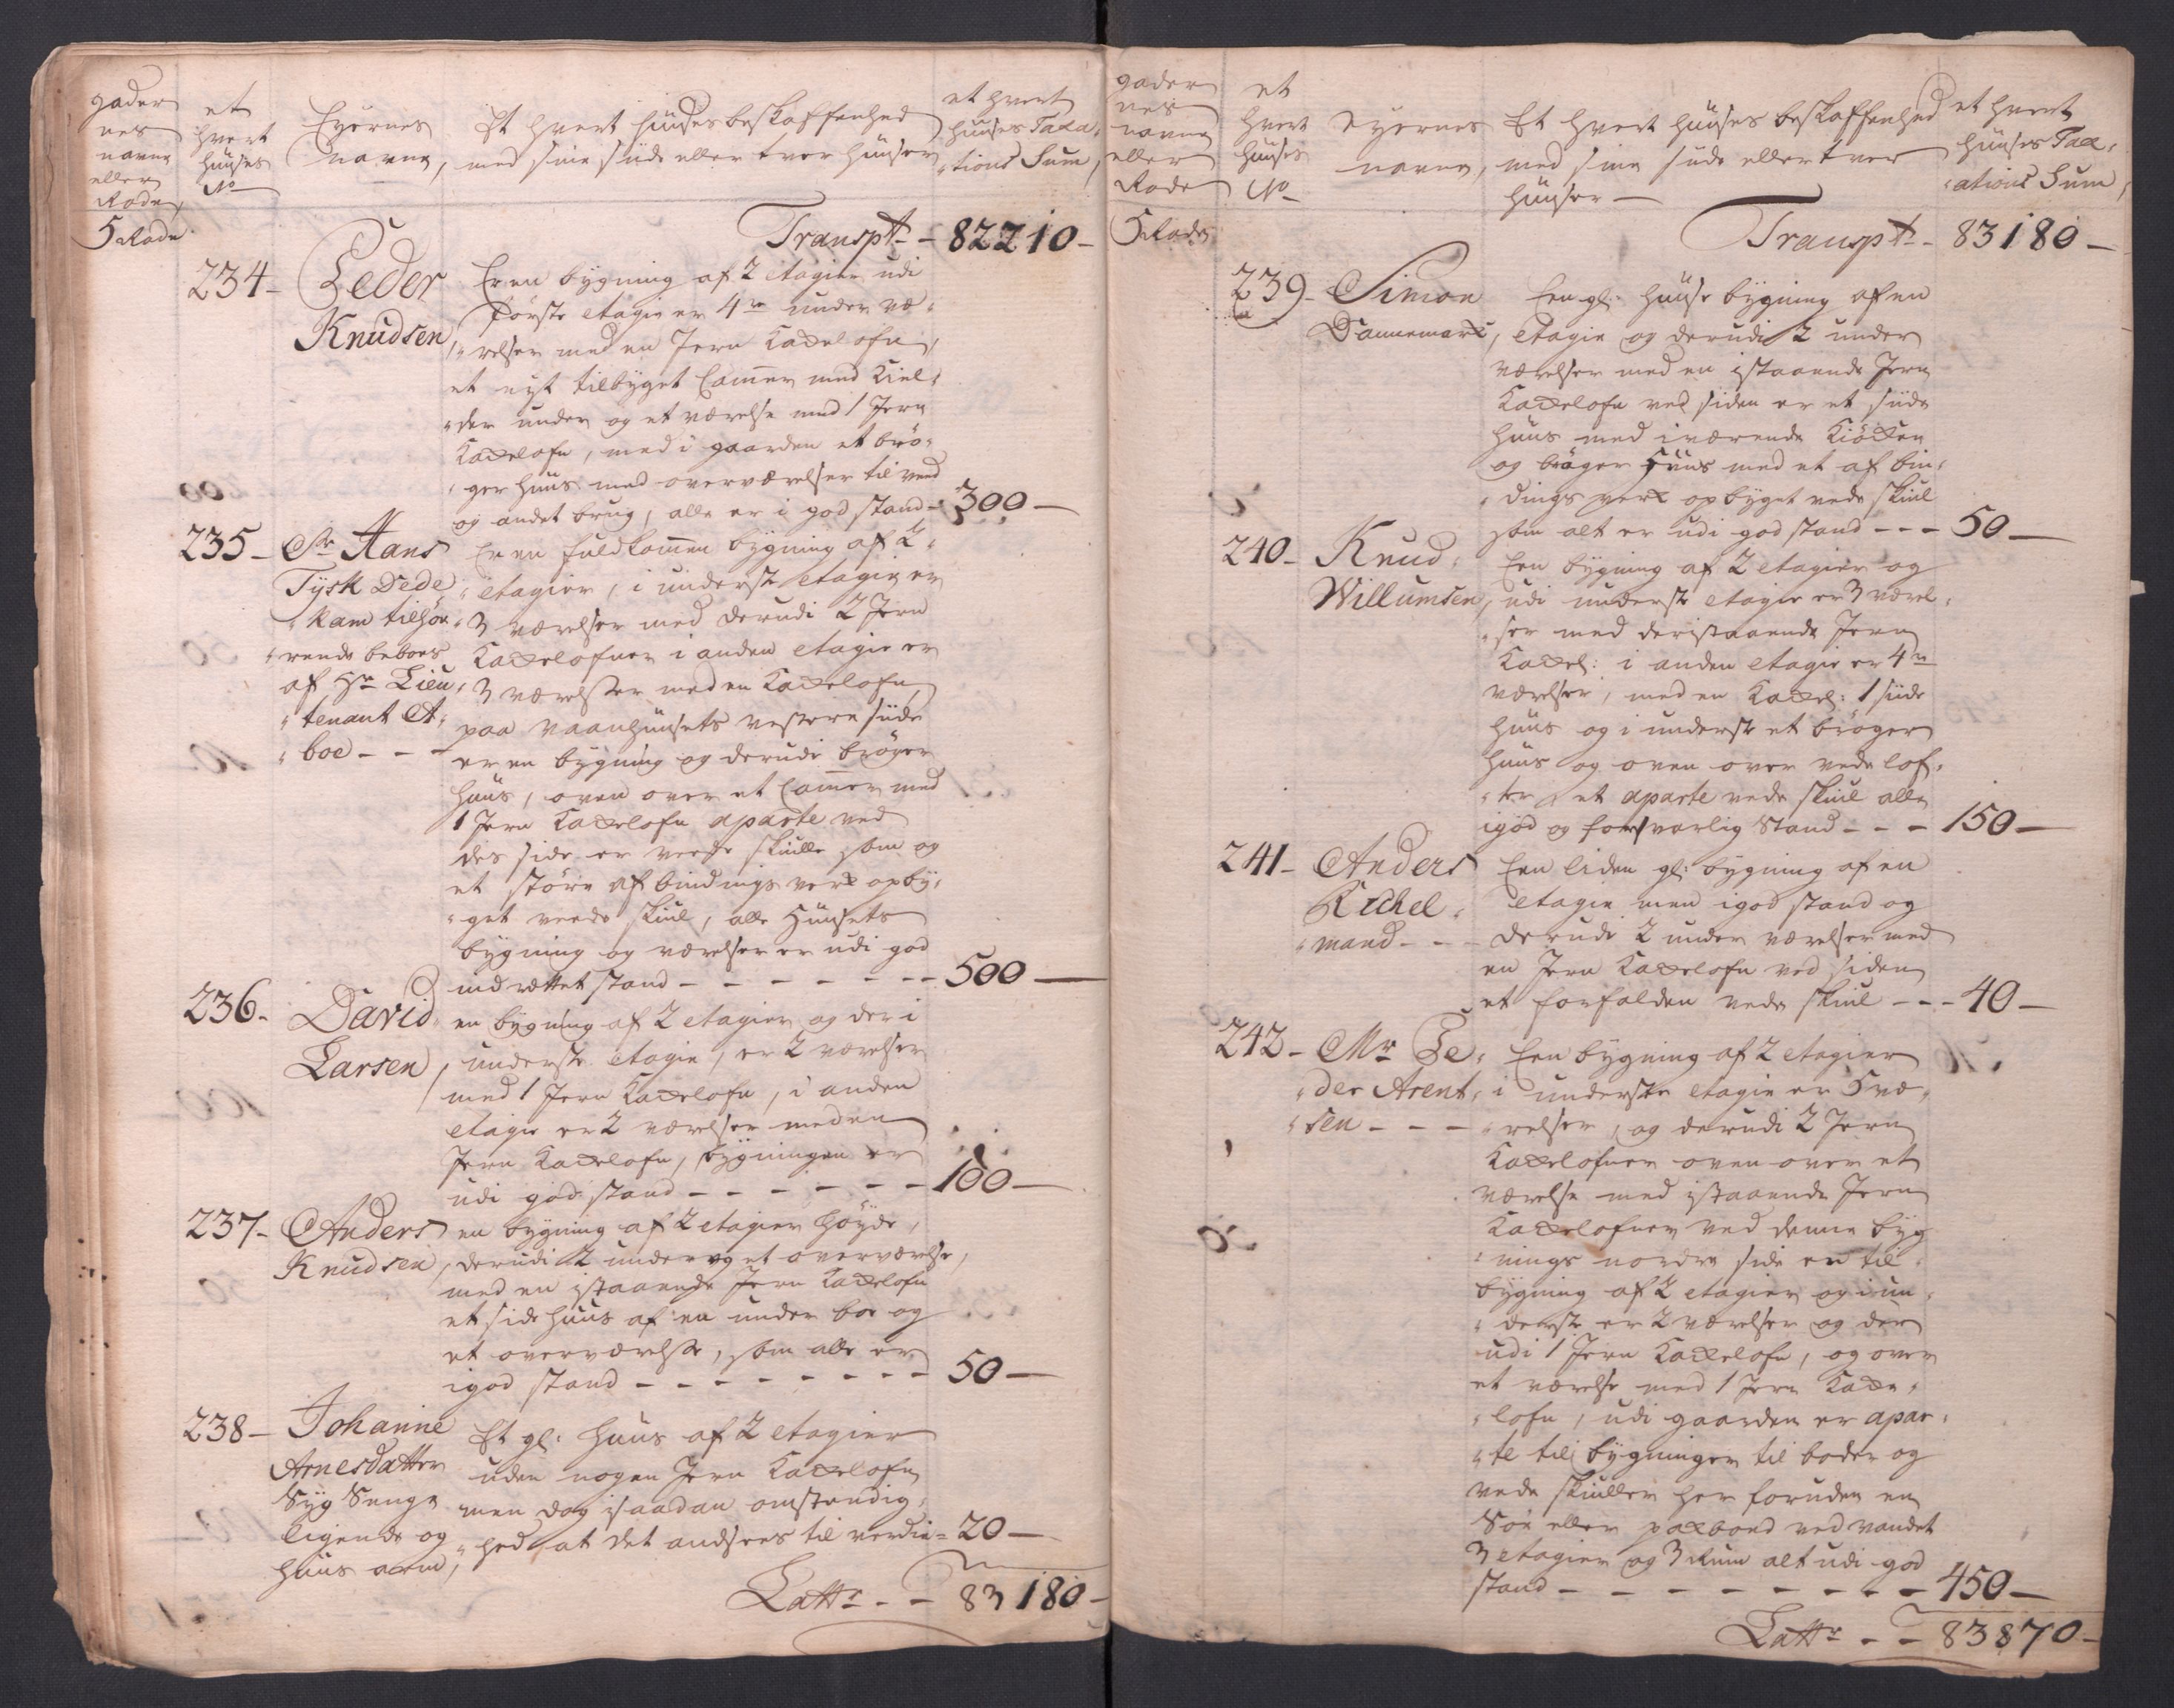 gader
nes
navne
eller
Rode,
et
hvert
huuses
No
Eyernes
navne,
Et hvert huuses beskaffenhed
med sine siide eller tver huuser
et hvert
huuses Taxa„
„tions Sum,
5 Rode
Transpt - 82210 -
234 - Peder
Knudsen,
Er en bygning af 2 etagier udi
første etagie er 4re under væ„
„relser med en Jern Kackelofn,
et nyt tilbyget Camer med Kiel„
„der under og et værelse med 1 Jern
Kackelofn, med i gaarden et brø„
„ger huus med overværelser til veed
og andet brug, alle er i god stand - 300 -
235 - Sr Hans
Tysk Dede„
„kam tilhør„
„rende beboes
af Hr Lieu„
„tenant A„
„boe - - -
Er en fuldkommen bygning af 2
etagier, i underste etagie er
3 værelser med derudi 2 Jern
Kackelofner i anden etagie er
3 værelser med en Kackelofn
paa vaanhuusets vestere siide
er en bygning og derudi brøger
huus, oven over et Camer med
1 Jern Kackelofn aparte ved
des side er veede skiulle som og
et større af bindings verk opby„
„get veede skiul, alle Huusets
bygning og værelser er udi god
indrettet stand - - - - - - 500 -
236 - David
Larsen,
en bygning af 2 etagier og der i
underste etagie, er 2 værelser
med 1 Jern Kackelofn, i anden
etagie er 2 værelser med en
Jern Kackelofn, bygningen er
udi god stand - - - - - - 100 -
237 - Anders
Knudsen,
en bygning af 2 etagier høyde,
derudi 2 under og et overværelse,
med en istaaende Jern Kackelofn
et side huus af en under boe og
et overværelse, som alle er
i god stand - - - - - - - 50 -
238 - Johanne
Arnesdatter
Syg Senge
liggende og
huus arm,
Et gl: huus af 2 etagier
uden nogen Jern Kackelofn
men dog i saadan omstendig„
„hed at det andsees til verdie - 20 -
Lattr - - 83180 -
gader
nes
navne
eller
Rode
et
hvert
huuses
No
Eyernes
navne,
Et hvert huuses beskaffenhed
med sine siide eller tver
huuser -
et hvert
huuses Tax„
„ations Sum,
5 Rode
Transpt - 83180 -
239 - Simon
Dannemark,
Een gl: huuse bygning af en
etagie og derudi 2 under
værelser med en istaaende Jern
Kackelofn ved siden er et siide
huus med iværende Kiøcken
og brøger Huus med et af bin„
„dings verk opbyget vede skiul
som alt er udi god stand - - - 50 -
240 - Knud
Willumsen,
Een bygning af 2 etagier og
udi underste etagie er 3 værel„
„ser med deristaaende Jern
Kackel: i anden etagie er 4re
værelser, med en Kackel: 1 siide
huus og i underste et brøger
huus og oven over vede lof„
„ter et aparte vede skiul alle
i god og forsvarlig Stand - - - 150 -
241 - Anders
Kickel„
„mand - - -
Een liden gl: bygning af en
etagie men i god stand og
derudi 2 under værelser med
en Jern Kackelofn ved siden
et forfalden vede skiul - - - 40 -
242 - Mr Pe„
„der Arent„
„sen - - -
Een bygning af 2 etagier
i underste etagie er 5 væ„
„relser, og derudi 2 Jern
Kackelofner oven over et
værelse med istaaende Jern
Kackelofner ved denne byg
„nings nordre side en til
bygning af 2 etagier og i un„
„derste er 2 værelser og der
udi 1 Jern Kackelofn, og over
et værelse med 1 Jern Kacke„
„lofn, udi gaarden er apar„
„te til bygninger til boder og
vede skiuller her foruden en
Søe eller packboed ved vandet
3 etagier og 3 Rum alt udi god
stand - - - - - - - - 450 -
Lattr - - 83870 -